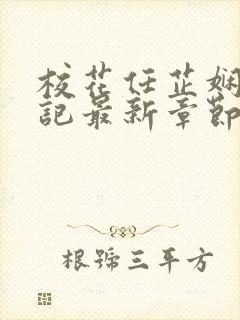 校花任芷娴
記最新章節
根號三平方